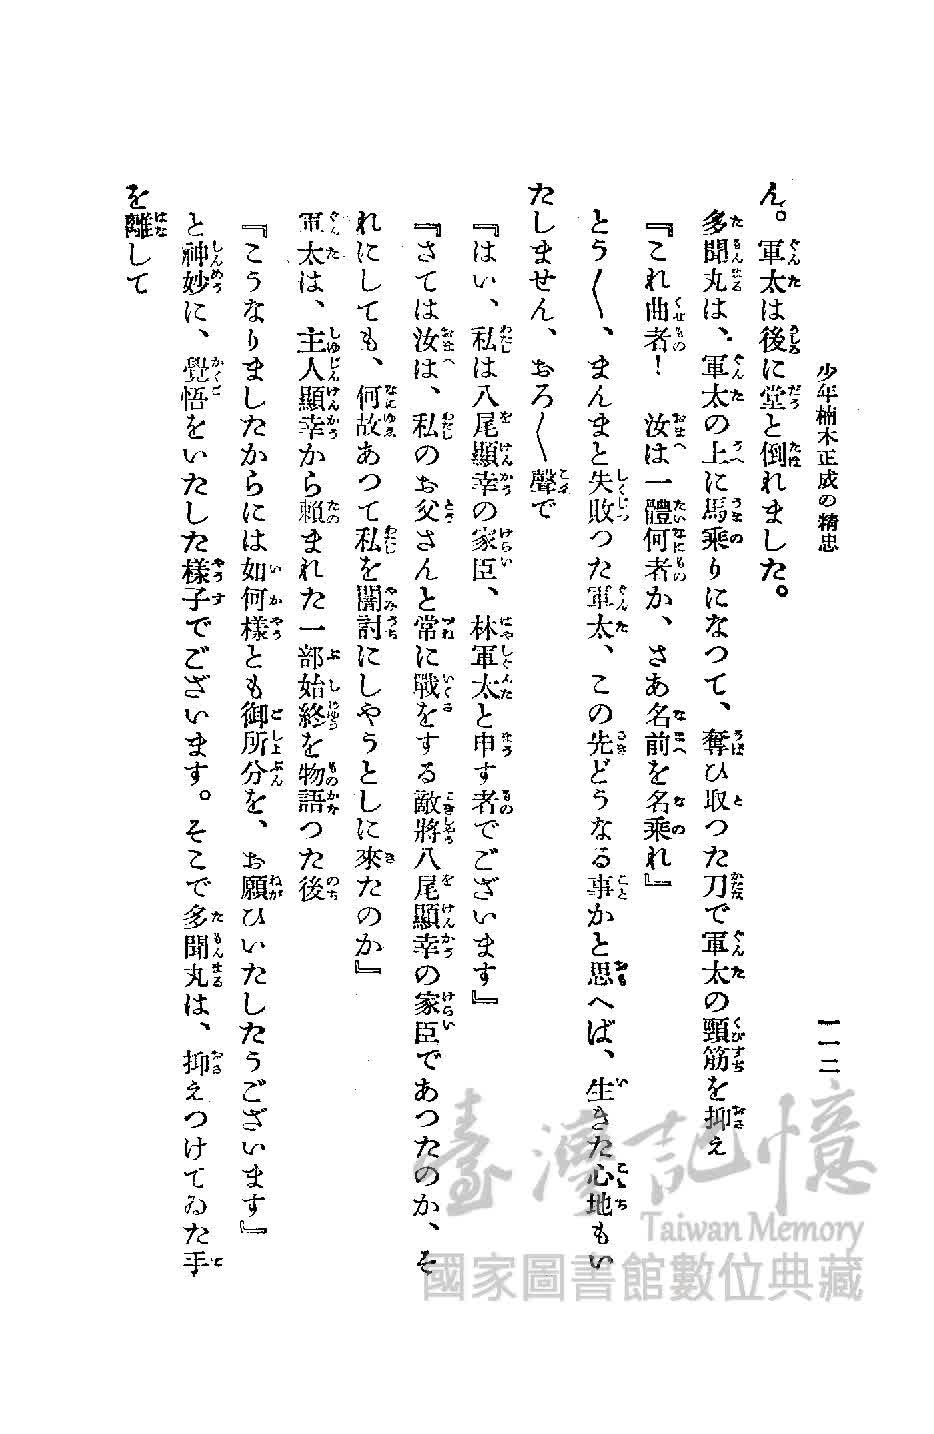 少年楠木正成の精忠
一一二
ん。軍太は後に堂と倒れました。
多聞丸は、軍太の上に馬乘りになつて、奪ひ取つた刀で軍太の頸筋を抑え
『これ曲者！　汝は一體何者か、さあ名前を名乘れ』
とう〱、まんまと失敗つた軍太、この先どうなる事かと思へば、生きた心地もい
たしません、おろ〱聲で
『はい、私は八尾顯幸の家臣、林軍太と申す者でございます』
『さては汝は、私のお父さんと常に戰をする敵將八尾顯幸の家臣であつたのか、そ
れにしても、何故あつて私を闇討にしやうとしに來たのか』
軍太は、主人顯幸から賴まれた一部始終を物語つた後
『こうなりましたからには如何樣とも御所分を、お願ひいたしたうございます』
と神妙に、覺悟をいたした樣子でございます。そこで多聞丸は、抑えつけてゐた手
を離して
臺灣記憶
Taiwan Memory
國家圖書館數位典藏